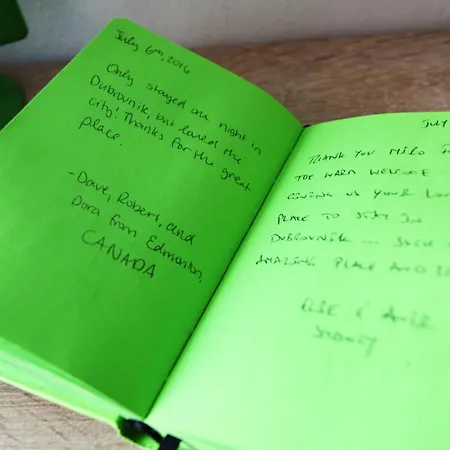 July 6th, 2016
Only stayed one night in
Dubrovnik, but loved the
city! Thanks for the great
place.
-Dave, Robert, and
Dora from Edmonton,
CANADA
JULY
THANK YOU MIRO
THE WARM WELCOME
GIVING US YOUR
PLACE TO STAY IN
DUBROVNIK ... SUCH
AMAZING PLACE AND
SYDNEY